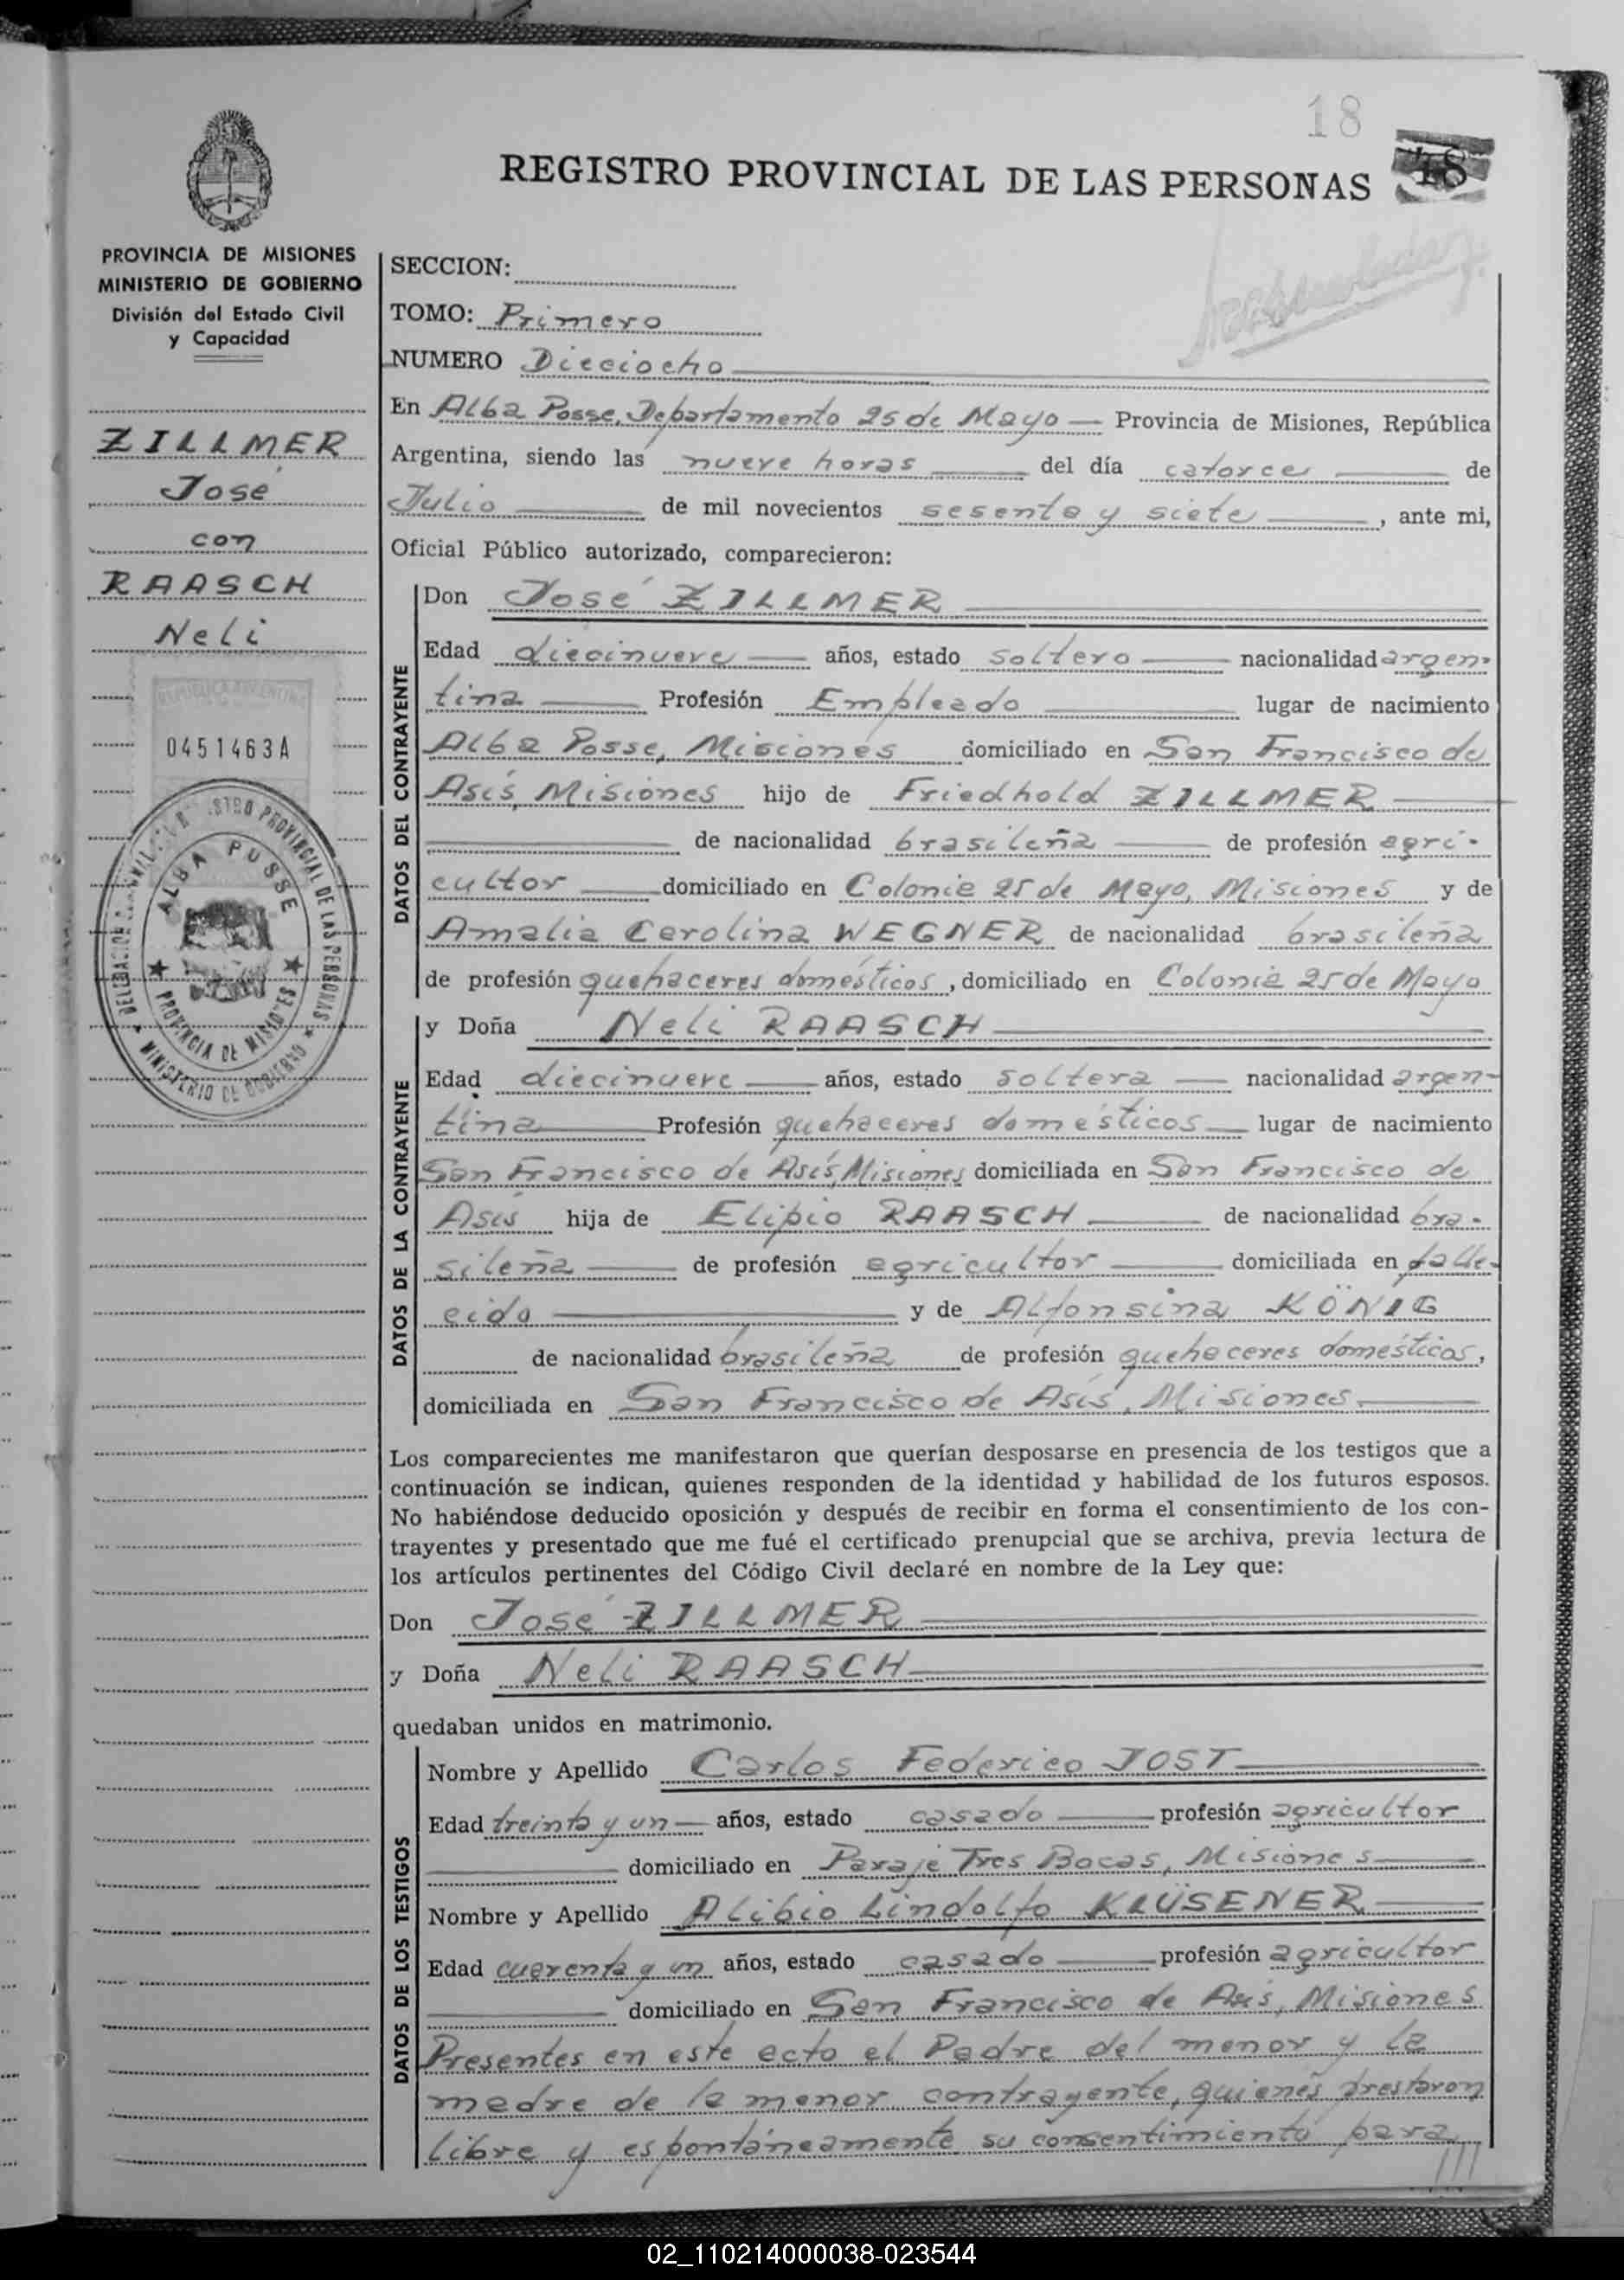 18
REGISTRO PROVINCIAL DE LAS PERSONAS 18
PROVINCIA DE MISIONES
MINISTERIO DE GOBIERNO
División del Estado Civil
y Capacidad
ZILLMER
José
con
RAASCH
Neli
REPUBLICA ARGENTINA
0451463A
REGISTRO PROVINCIAL DE LAS PERSONAS
ALBA POSSE
PROVINCIA DE MISIONES
MINISTERIO DE GOBIERNO
SECCION:
TOMO: Primero
NUMERO Dieciocho
En Alba Posse, Departamento 25 de Mayo Provincia de Misiones, República
Argentina, siendo las nueve horas del día catorce de
Julio de mil novecientos sesenta y siete, ante mi,
Oficial Público autorizado, comparecieron:
DATOS DEL CONTRAYENTE
Don José ZILLMER
Edad diecinueve años, estado soltero nacionalidad argen-
tina Profesión Empleado lugar de nacimiento
Alba Posse, Misiones domiciliado en San Francisco de
Asís, Misiones hijo de Friedhold ZILLMER
de nacionalidad brasileña de profesión agri-
cultor domiciliado en Colonia 25 de Mayo, Misiones y de
Amalia Carolina WEGNER de nacionalidad brasileña
de profesión quehaceres domésticos, domiciliado en Colonia 25 de Mayo
DATOS DE LA CONTRAYENTE
y Doña Neli RAASCH
Edad diecinueve años, estado soltera nacionalidad argen-
tina Profesión quehaceres domésticos lugar de nacimiento
San Francisco de Asís, Misiones domiciliada en San Francisco de
Asís hija de Elipio RAASCH de nacionalidad bra-
sileña de profesión agricultor domiciliada en falle-
cido y de Alfonsina KÖNIG
de nacionalidad brasileña de profesión quehaceres domésticos,
domiciliada en San Francisco de Asís, Misiones
Los comparecientes me manifestaron que querían desposarse en presencia de los testigos que a
continuación se indican, quienes responden de la identidad y habilidad de los futuros esposos.
No habiéndose deducido oposición y después de recibir en forma el consentimiento de los con-
trayentes y presentado que me fué el certificado prenupcial que se archiva, previa lectura de
los artículos pertinentes del Código Civil declaré en nombre de la Ley que:
Don José ZILLMER
y Doña Neli RAASCH
quedaban unidos en matrimonio.
DATOS DE LOS TESTIGOS
Nombre y Apellido Carlos Federico JOST
Edad treinta y un años, estado casado profesión agricultor
domiciliado en Paraje Tres Bocas, Misiones
Nombre y Apellido Alibio Lindolfo KLÜSENER
Edad cuarenta y un años, estado casado profesión agricultor
domiciliado en San Francisco de Asís, Misiones
Presentes en este acto el Padre del menor y la
madre de la menor contrayente, quienes prestaron
libre y espontáneamente su consentimiento para
///
02_110214000038-023544